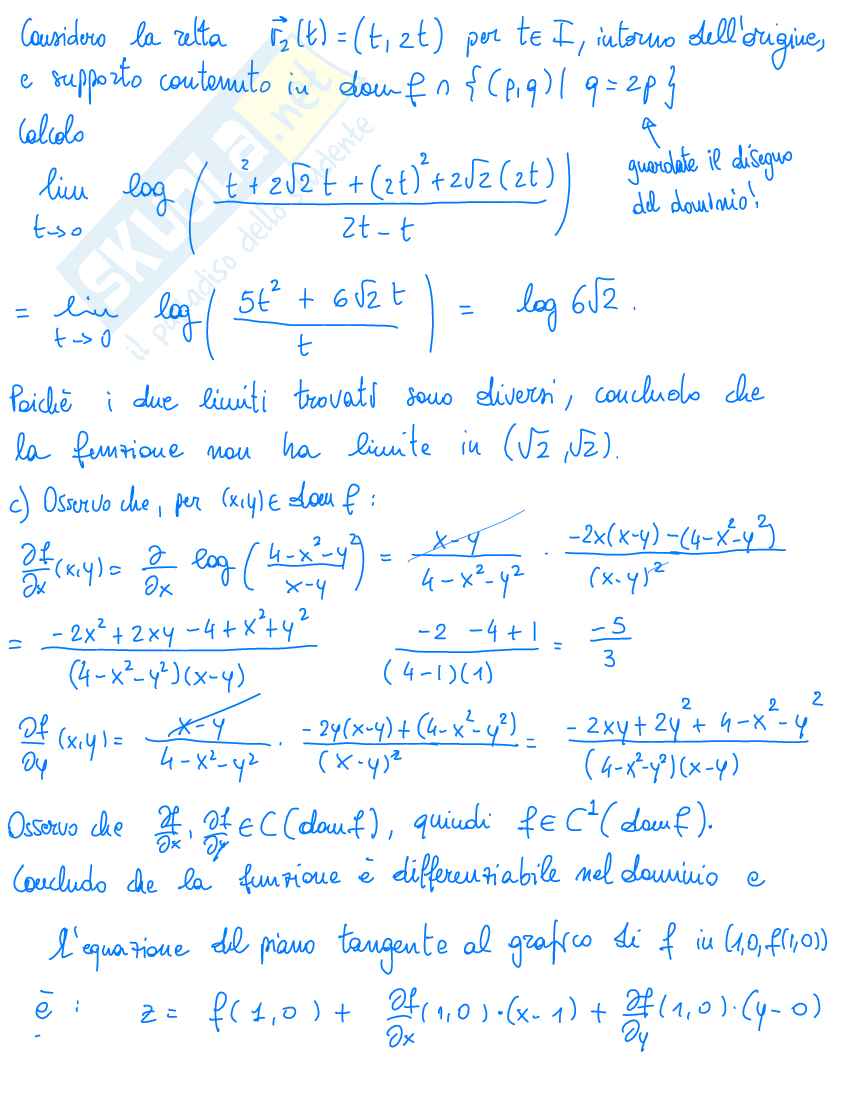 Considero la retta r⃗₂(t) = (t, 2t) per t∈ I, intorno dell'origine,
e supporto contenuto in dom f ∩ {(p,q) | q = 2p}
Calcolo
guardate il disegno
del dominio!
lim t→0 log ( (t² + 2√2 t + (2t)² + 2√2 (2t)) / (2t - t) )
= lim t→0 log ( (5t² + 6√2 t) / t ) = log 6√2 .
Poichè i due limiti trovati sono diversi, concludo che
la funzione non ha limite in (√2, √2).
c) Osservo che, per (x,y) ∈ dom f :
∂f/∂x (x,y) = ∂/∂x log ( (4-x²-y²) / (x-y) ) = (x-y) / (4-x²-y²) · (-2x(x-y) - (4-x²-y²)) / (x-y)²
= (-2x² + 2xy - 4 + x² + y²) / ((4-x²-y²)(x-y)) (-2 -4+1) / ((4-1)(1)) = -5/3
∂f/∂y (x,y) = (x-y) / (4-x²-y²) · (-2y(x-y) + (4-x²-y²)) / (x-y)² = (-2xy + 2y² + 4-x²-y²) / ((4-x²-y²)(x-y))
Osservo che ∂f/∂x, ∂f/∂y ∈ C (dom f), quindi f ∈ C¹ (dom f).
Concludo che la funzione è differenziabile nel dominio e
l'equazione del piano tangente al grafico di f in (1,0,f(1,0))
è : z = f(1,0) + ∂f/∂x (1,0)·(x-1) + ∂f/∂y (1,0)·(y-0)
SKUOLA.net
il paradiso dello studente